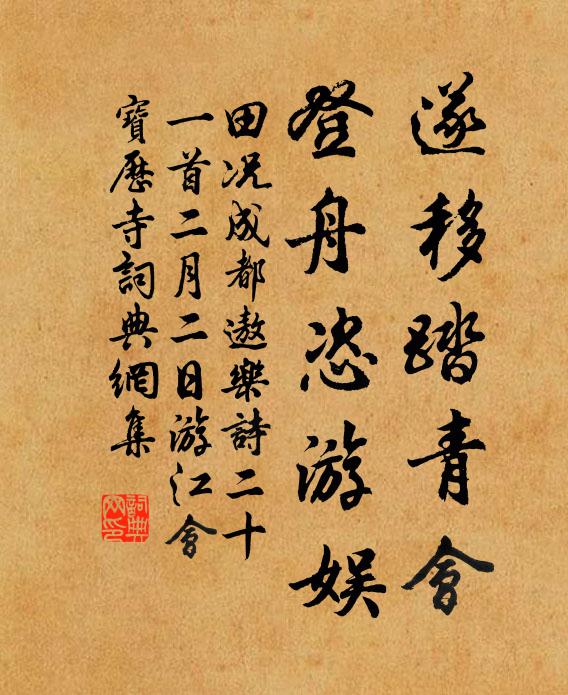 遂移踏青會
登舟恣游娱
田况成都遨樂詩二十
一首二月二日游江會
寶歷寺詞典網集
詞典
网印